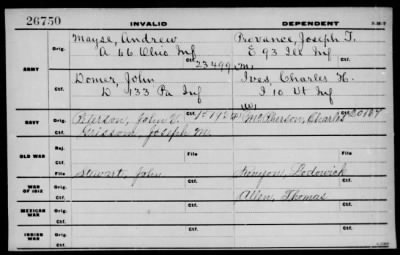 26750
INVALID
DEPENDENT
3-50-7
ARMY
Orig.
Mayse, Andrew
A 66 Ohio Inf
Ctf.
Provance, Joseph T.
E 93 Ill Inf
23499
Orig.
Domer, John
D 133 Pa Inf
Ctf.
Ives, Charles H.
I 10 Vt Inf
NAVY
Orig.
Peterson, John V.
McPherson, Charles
20187
Ctf.
Grissom, Joseph M.
OLD WAR
Rej.
Ctf.
File
Ctf.
File
WAR OF 1812
Orig.
Stewart, John
Ctf.
Lodowick
Allen, Thomas
MEXICAN WAR
Orig.
Ctf.
Ctf.
INDIAN WAR
Orig.
Ctf.
Ctf.